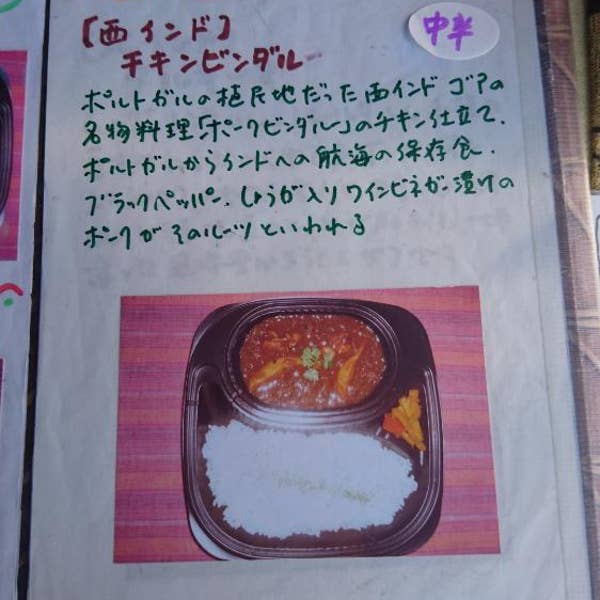 【西インド】
チキンビンダルー
中辛
ポルトガルの植民地だった西インド ゴアの
名物料理「ポークビンダル」のチキン仕立て.
ポルトガルからインドへの航海の保存食.
ブラックペッパー. しょうが入りワインビネガー漬けの
ポークがそのルーツといわれる